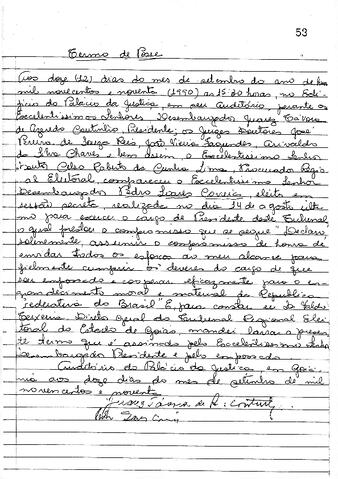 53
Termo de Posse
Aos doze (12) dias do mês de setembro do ano de
mil novecentos e noventa (1990) às 15:30 horas, no Edi-
fício do Palácio da Justiça, em seu Auditório, perante os
Excelentíssimos Senhores Desembargador Juarez Távora
de Azeredo Coutinho, Presidente; os Juízes Doutores José
Pereira de Souza Reis, João Vieira Fagundes,
da Silva Chaves e bem assim o Excelentíssimo Senhor
Doutor Célio Roberto da Cunha Lima Procurador Regio-
al Eleitoral, compareceu o Excelentíssimo Senhor
Desembargador Pedro Soares Correia, eleito em
sessão secreta realizada no dia 14 de agosto últi-
mo para exercer o cargo de Presidente deste Tribunal
o qual prestou o compromisso que se segue "Declaro,
solenemente, assumir o compromisso de honra de
envidar todos os esforços ao meu alcance para
fielmente cumprir os deveres do cargo de que
sou empossado e cooperar eficazmente para o en-
grandecimento moral e material da República
Federativa do Brasil". E, para constar eu
Teixeira Diretor Geral do Tribunal Regional Elei-
toral do Estado de Goiás, mandei lavrar o presen-
te termo que é assinado pelo Excelentíssimo Senhor
Desembargador Presidente e pelo empossado.
Auditório do Palácio da Justiça, em Goiâ-
nia aos doze dias do mês de setembro de mil
novecentos e noventa.
Juarez Távora de A. Coutinho